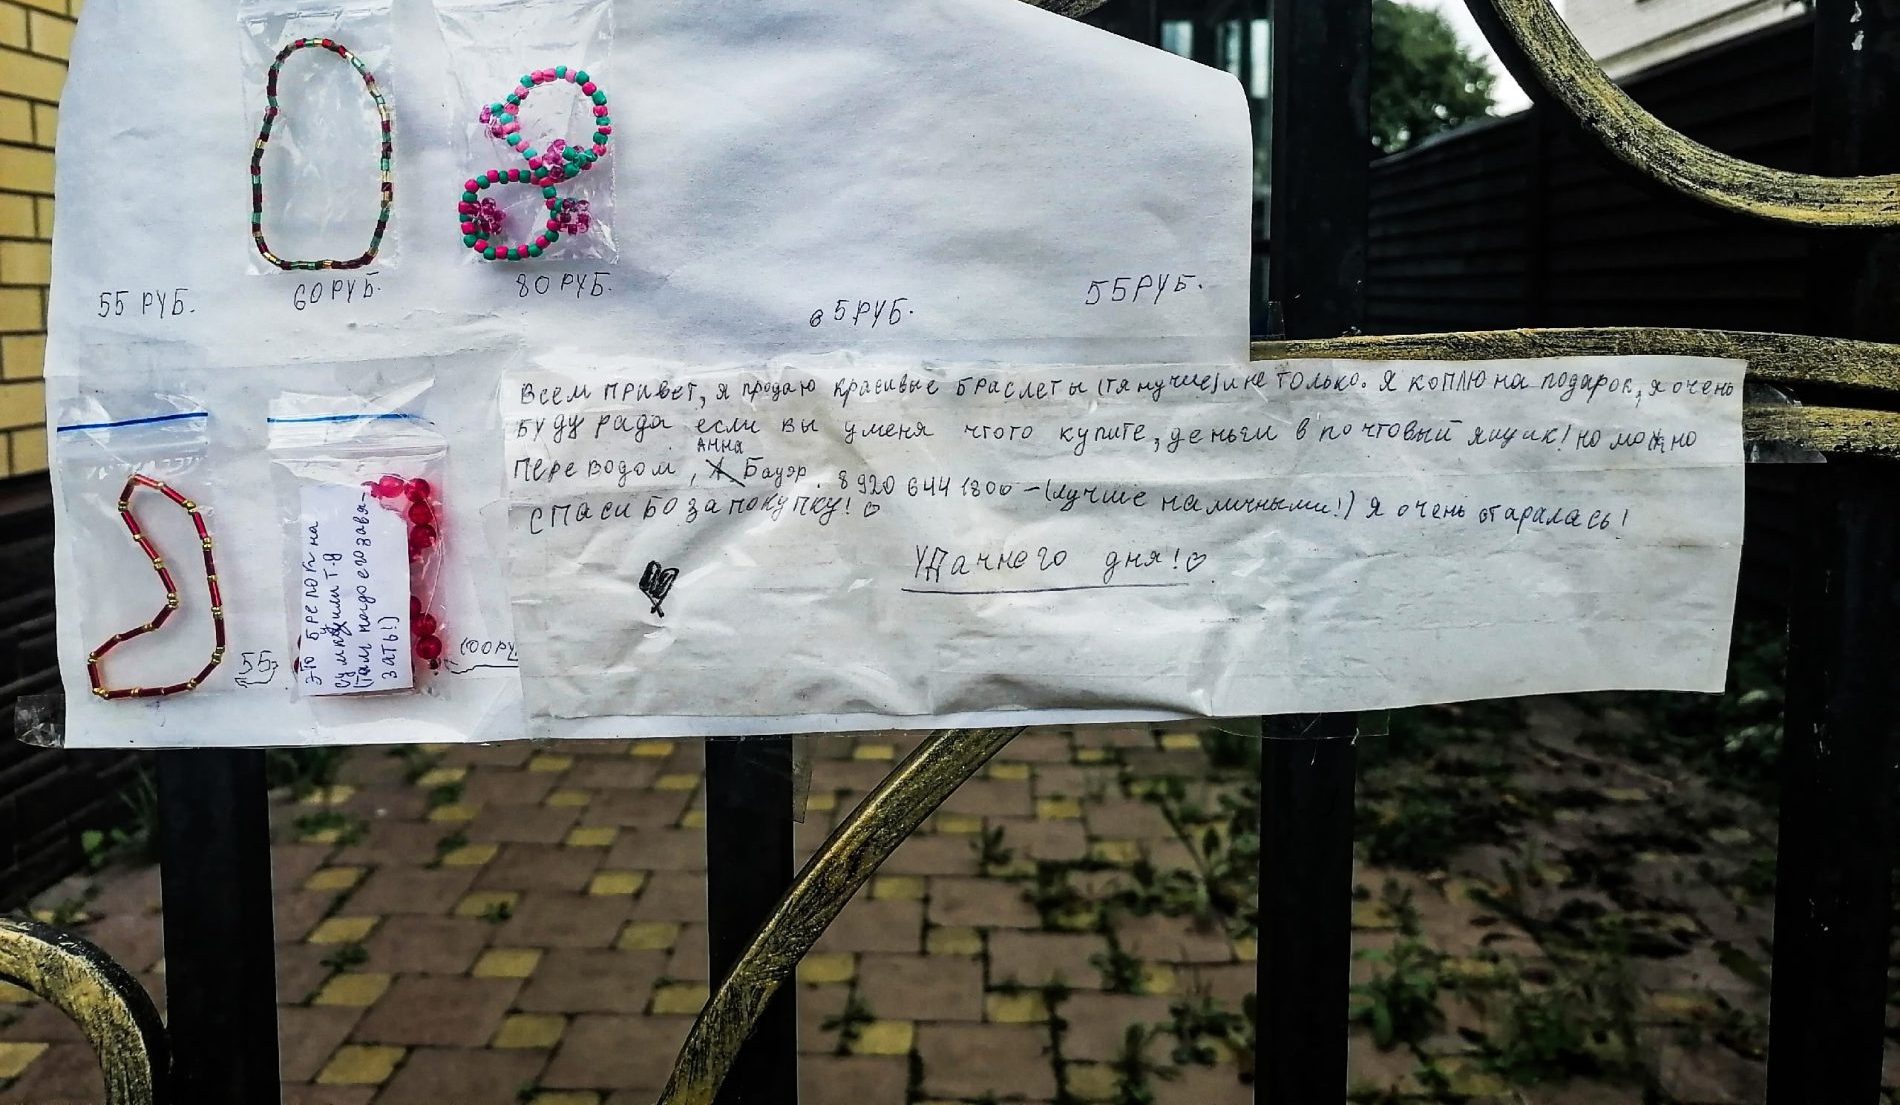 55 РУБ.
60 РУБ.
80 РУБ.
65 РУБ.
55 РУБ.
Всем привет, я продаю красивые браслеты (тянучие) и не только. Я коплю на подарок, я очень
буду рада если вы у меня чтото купите, деньги в почтовый ящик! но можно
Анна
переводом, Бауэр. 8 920 644 1800 – (лучше наличными!) Я очень старалась!
СПАСИБО ЗА ПОКУПКУ! ♡
Удачнего дня! ♡
55
100 РУ
это брелок на
сумку или т.д
(там надо его завя-
зать!)